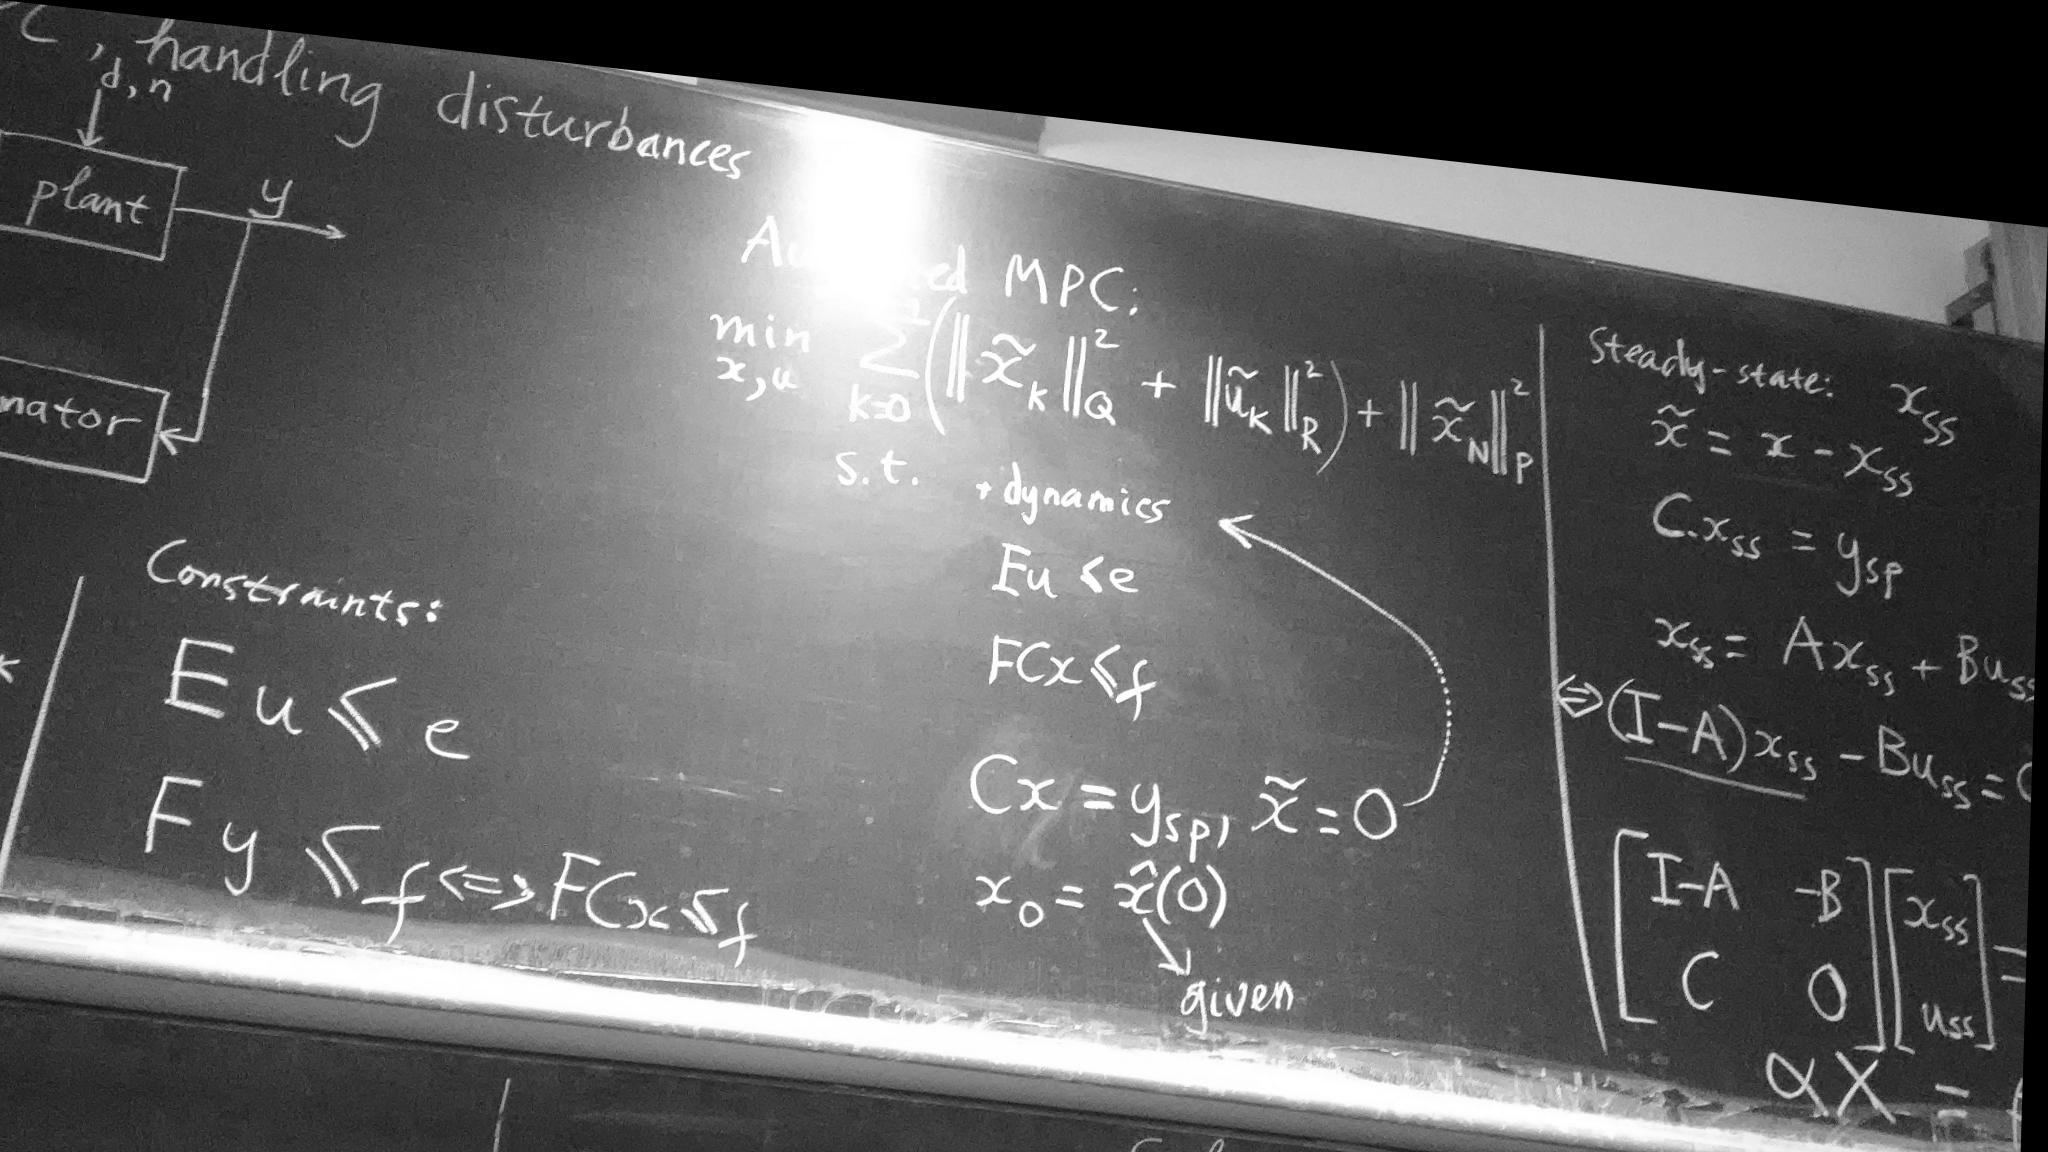 , handling disturbances
d, n
plant
y
Constraints:
E u ⩽ e
F y ⩽ f ⇔ FCx ⩽ f
MPC:
min Σ (‖x̃_k‖²_Q + ‖ũ_k‖²_R) + ‖x̃_N‖²_P
x,u k=0
s.t. + dynamics
Eu ⩽ e
FCx ⩽ f
Cx = y_sp, x̃ = 0
x_0 = x̂(0)
given
Steady-state: x_ss
x̃ = x - x_ss
C.x_ss = y_sp
x_ss = Ax_ss + Bu_ss
⇔ (I-A)x_ss - Bu_ss =
[I-A -B] [x_ss] =
[C 0] [u_ss]
αX =